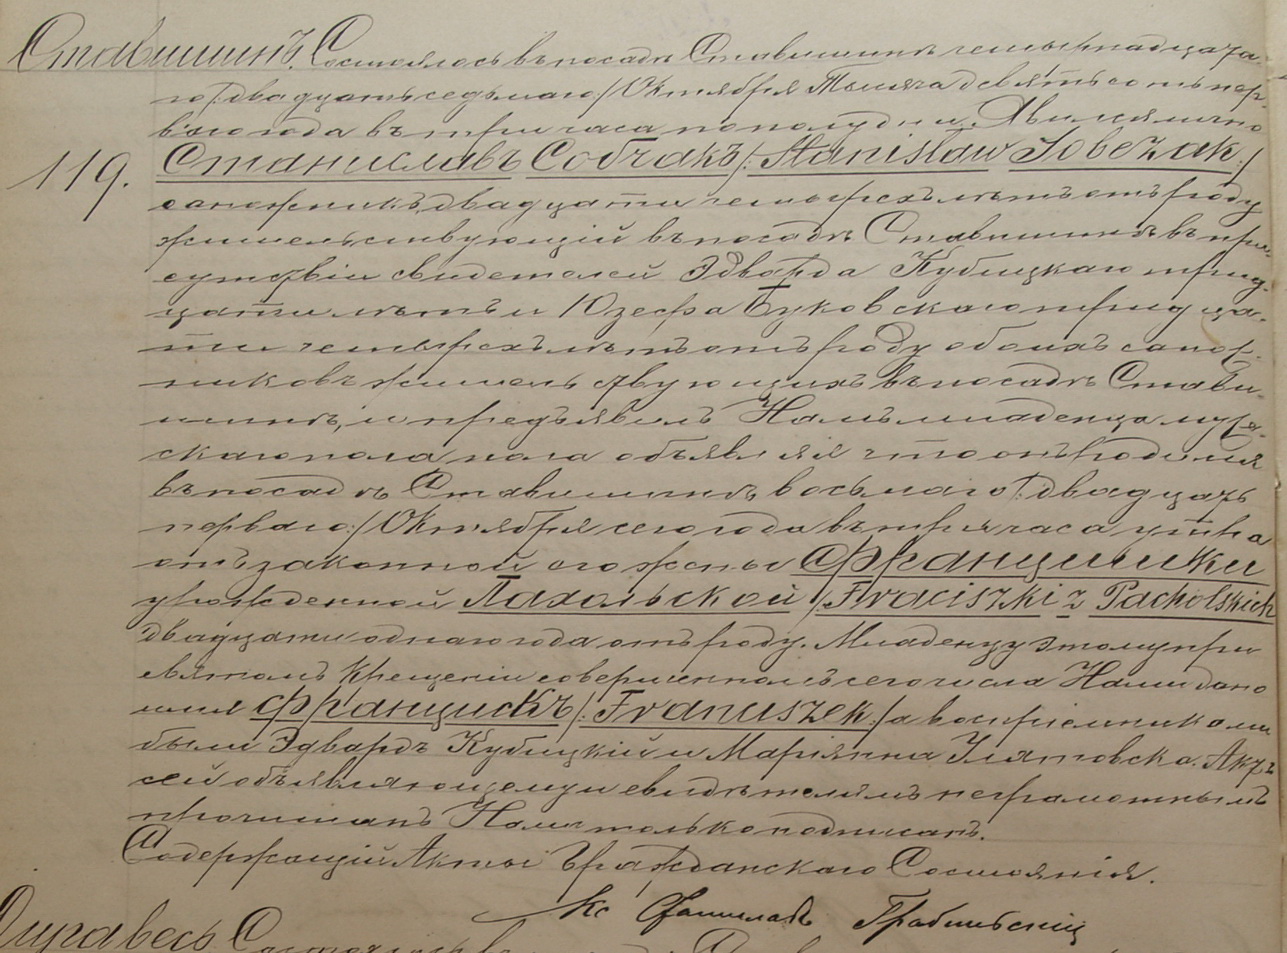 Ставишинъ. Состоялось въ посадѣ Ставишинѣ четырнадцата-
го /:двадцать седьмаго:/ Октября Тысяча девятьсотъ пер-
ваго года въ три часа по полудни. Явился лично
119. Станиславъ Собчакъ /: Stanisław Sobczak :/
сапожникъ, двадцати четырехъ лѣтъ отъ роду
жительствующій въ посадѣ Ставишинѣ въ при-
сутствіи свидетелей Эдварда Кубицкаго трид-
цати лѣтъ и Юзефа Буковскаго тридца-
ти четырехъ лѣтъ отъ роду обоихъ сапож-
никовъ жительствующихъ въ посадѣ Стави-
шинѣ, и предъявилъ Намъ младенца муже-
скаго пола пола объявляя что онъ родился
въ посадѣ Ставишинѣ восьмаго /:двадцать
перваго:/ Октября сего года въ три часа утра
отъ законной его жены Францишки
урожденной Пахольской /: Fraciszki z Pacholskich
двадцати одного года отъ роду. Младенцу этому при
святомъ Крещеніи совершенномъ сего числа Нами дано
имя Францискъ /: Franciszek :/ а воспріемниками
были Эдвардъ Кубицкій и Маріянна Улятовска. Актъ
сей объявляющему и свидѣтелямъ неграмотнымъ
прочитанъ Нами только подписанъ.
Содержащій Акты Гражданскаго Состоянія.
Кс Станиславъ Грабинскій
Состоялось въ